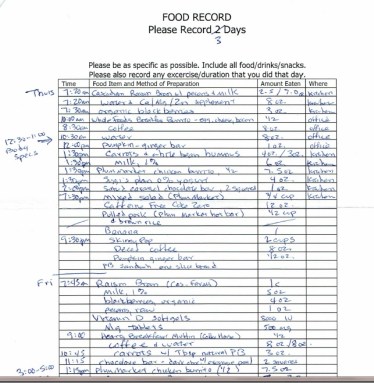 FOOD RECORD
Please Record 2 Days
3
Please be as specific as possible. Include all food/drinks/snacks.
Please also record any excercise/duration that you did that day.
Time Food Item and Method of Preparation Amount Eaten Where
Thurs 7:20am Cascadian Raisin Bran w/ pecans & milk kitchen
7:20am water & Cal/Mg/Zn supplement 8 oz. kitchen
7:30am organic blackberries 3 oz. kitchen
10:00am Whole Foods Breakfast Burrito - egg, cheese, bacon 1/2 office
8:30am coffee 8 oz. office
10:30am water 8 oz. office
12:00pm pumpkin ginger bar 1 oz. office
1:30pm carrots & white bean hummus 4oz./3oz. kitchen
1:30pm Milk, 1% 6 oz. kitchen
1:30pm Plum Market chicken burrito, 1/2 7.5oz kitchen
1:30pm plain 0% yogurt 4 oz. kitchen
small covered chocolate bar, 2 squares
mixed salad (Plum Market) cup kitchen
Caffeine Free Coke Zero 12 oz.
Pulled pork (Plum Market hot bar) 1/2 cup
& brown rice
Banana 1
9:30pm Skinny Pop 2 cups
Decaf coffee 8 oz.
Pumpkin ginger bar 1/2 oz.
PB sandwich one slice bread
Fri 7:45am Raisin Bran (Cas. Farms) 1c
Milk, 1% 5 oz
blackberries, organic 4 oz
1 oz
Vitamin D softgels 5000 IU
Mg tablets 500 mg
9:00 Hearty Breakfast Muffin 1/2
coffee & water 8 oz/8oz.
10:45 carrots w/ Tbsp natural PB 3 oz.
11:15 chocolate bar - dark w/ orange peel 2 squares
1:15pm Plum Market chicken burrito (1/2) 7.5 oz